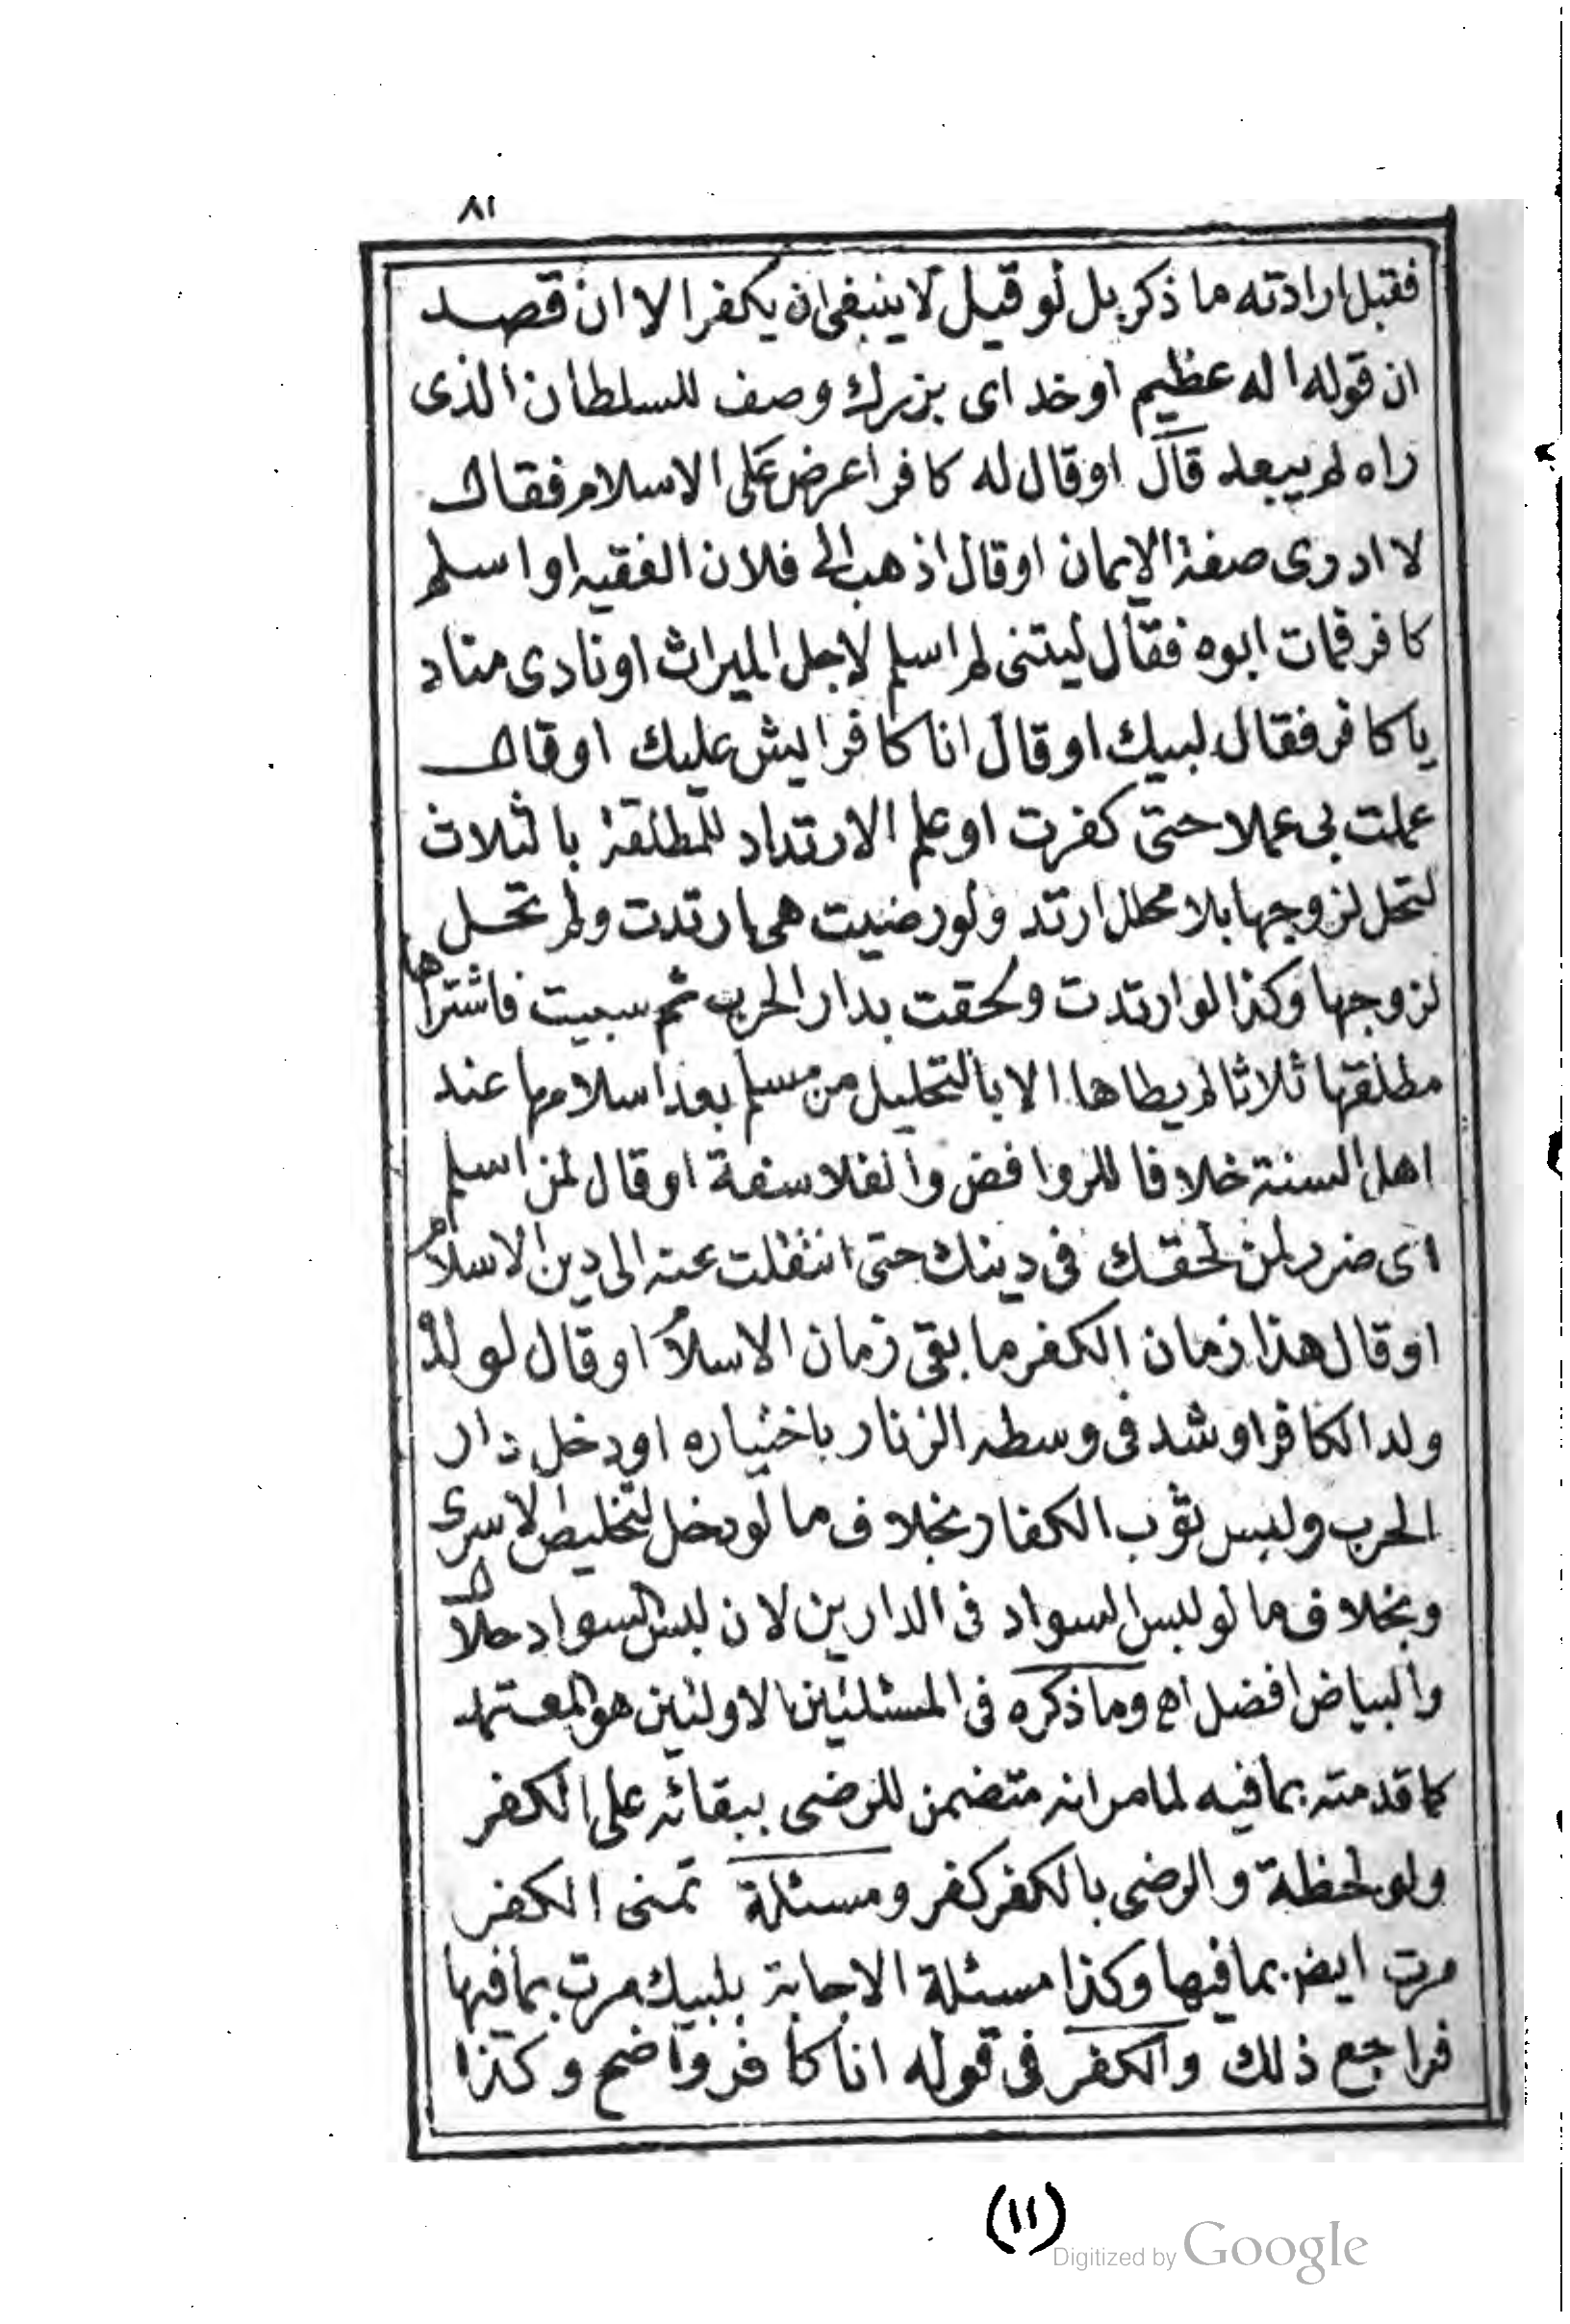 ٨١
فقبل ارادته ما ذكر بل لو قيل لا ينبغى ان يكفر الا ان قصد
ان قوله اله عظيم او خداى بزرك وصف للسلطان الذى
راه لم يبعد قال او قال له كافر اعرض على الاسلام فقال
لا ادرى صفة الايمان او قال اذهب الى فلان الفقيه او اسلم
كافر فمات ابوه فقال ليتنى لم اسلم لاجل الميراث او نادى مناد
يا كافر فقال لبيك او قال انا كافر ايش عليك او قال
عملت بى عملا حتى كفرت او علم الارتداد للمطلقة بالثلاث
لتحل لزوجها بلا محلل ارتد ولو رضيت هى ارتدت ولم تحل
لزوجها وكذا لو ارتدت ولحقت بدار الحرب ثم سبيت فاشتراها
مطلقها ثلاثا لم يطاها الا بالتحليل من مسلم بعد اسلامها عند
اهل السنة خلافا للروافض والفلاسفة او قال لمن اسلم
اى ضرر لمن لحقك فى دينك حتى انتقلت عنه الى دين الاسلام
او قال هذا زمان الكفر ما بقى زمان الاسلام او قال لولده
ولد الكافر او شد فى وسطه الزنار باختياره او دخل دار
الحرب ولبس ثوب الكفار بخلاف ما لو دخل لتخليص الاسرى
وبخلاف ما لو لبس السواد فى الدارين لان لبس السواد حلال
والبياض افضل اه وما ذكره فى المسئلتين الاولتين هو المعتمد
كما قدمته بما فيه لما مر انه متضمن للرضى ببقائه على الكفر
ولو لحظة والرضى بالكفر كفر ومسئلة تمنى الكفر
مرت ايض بما فيها وكذا مسئلة الاجابة بلبيك مرت بما فيها
فراجع ذلك والكفر فى قوله انا كافر واضح وكذا
(١١)
Digitized by Google